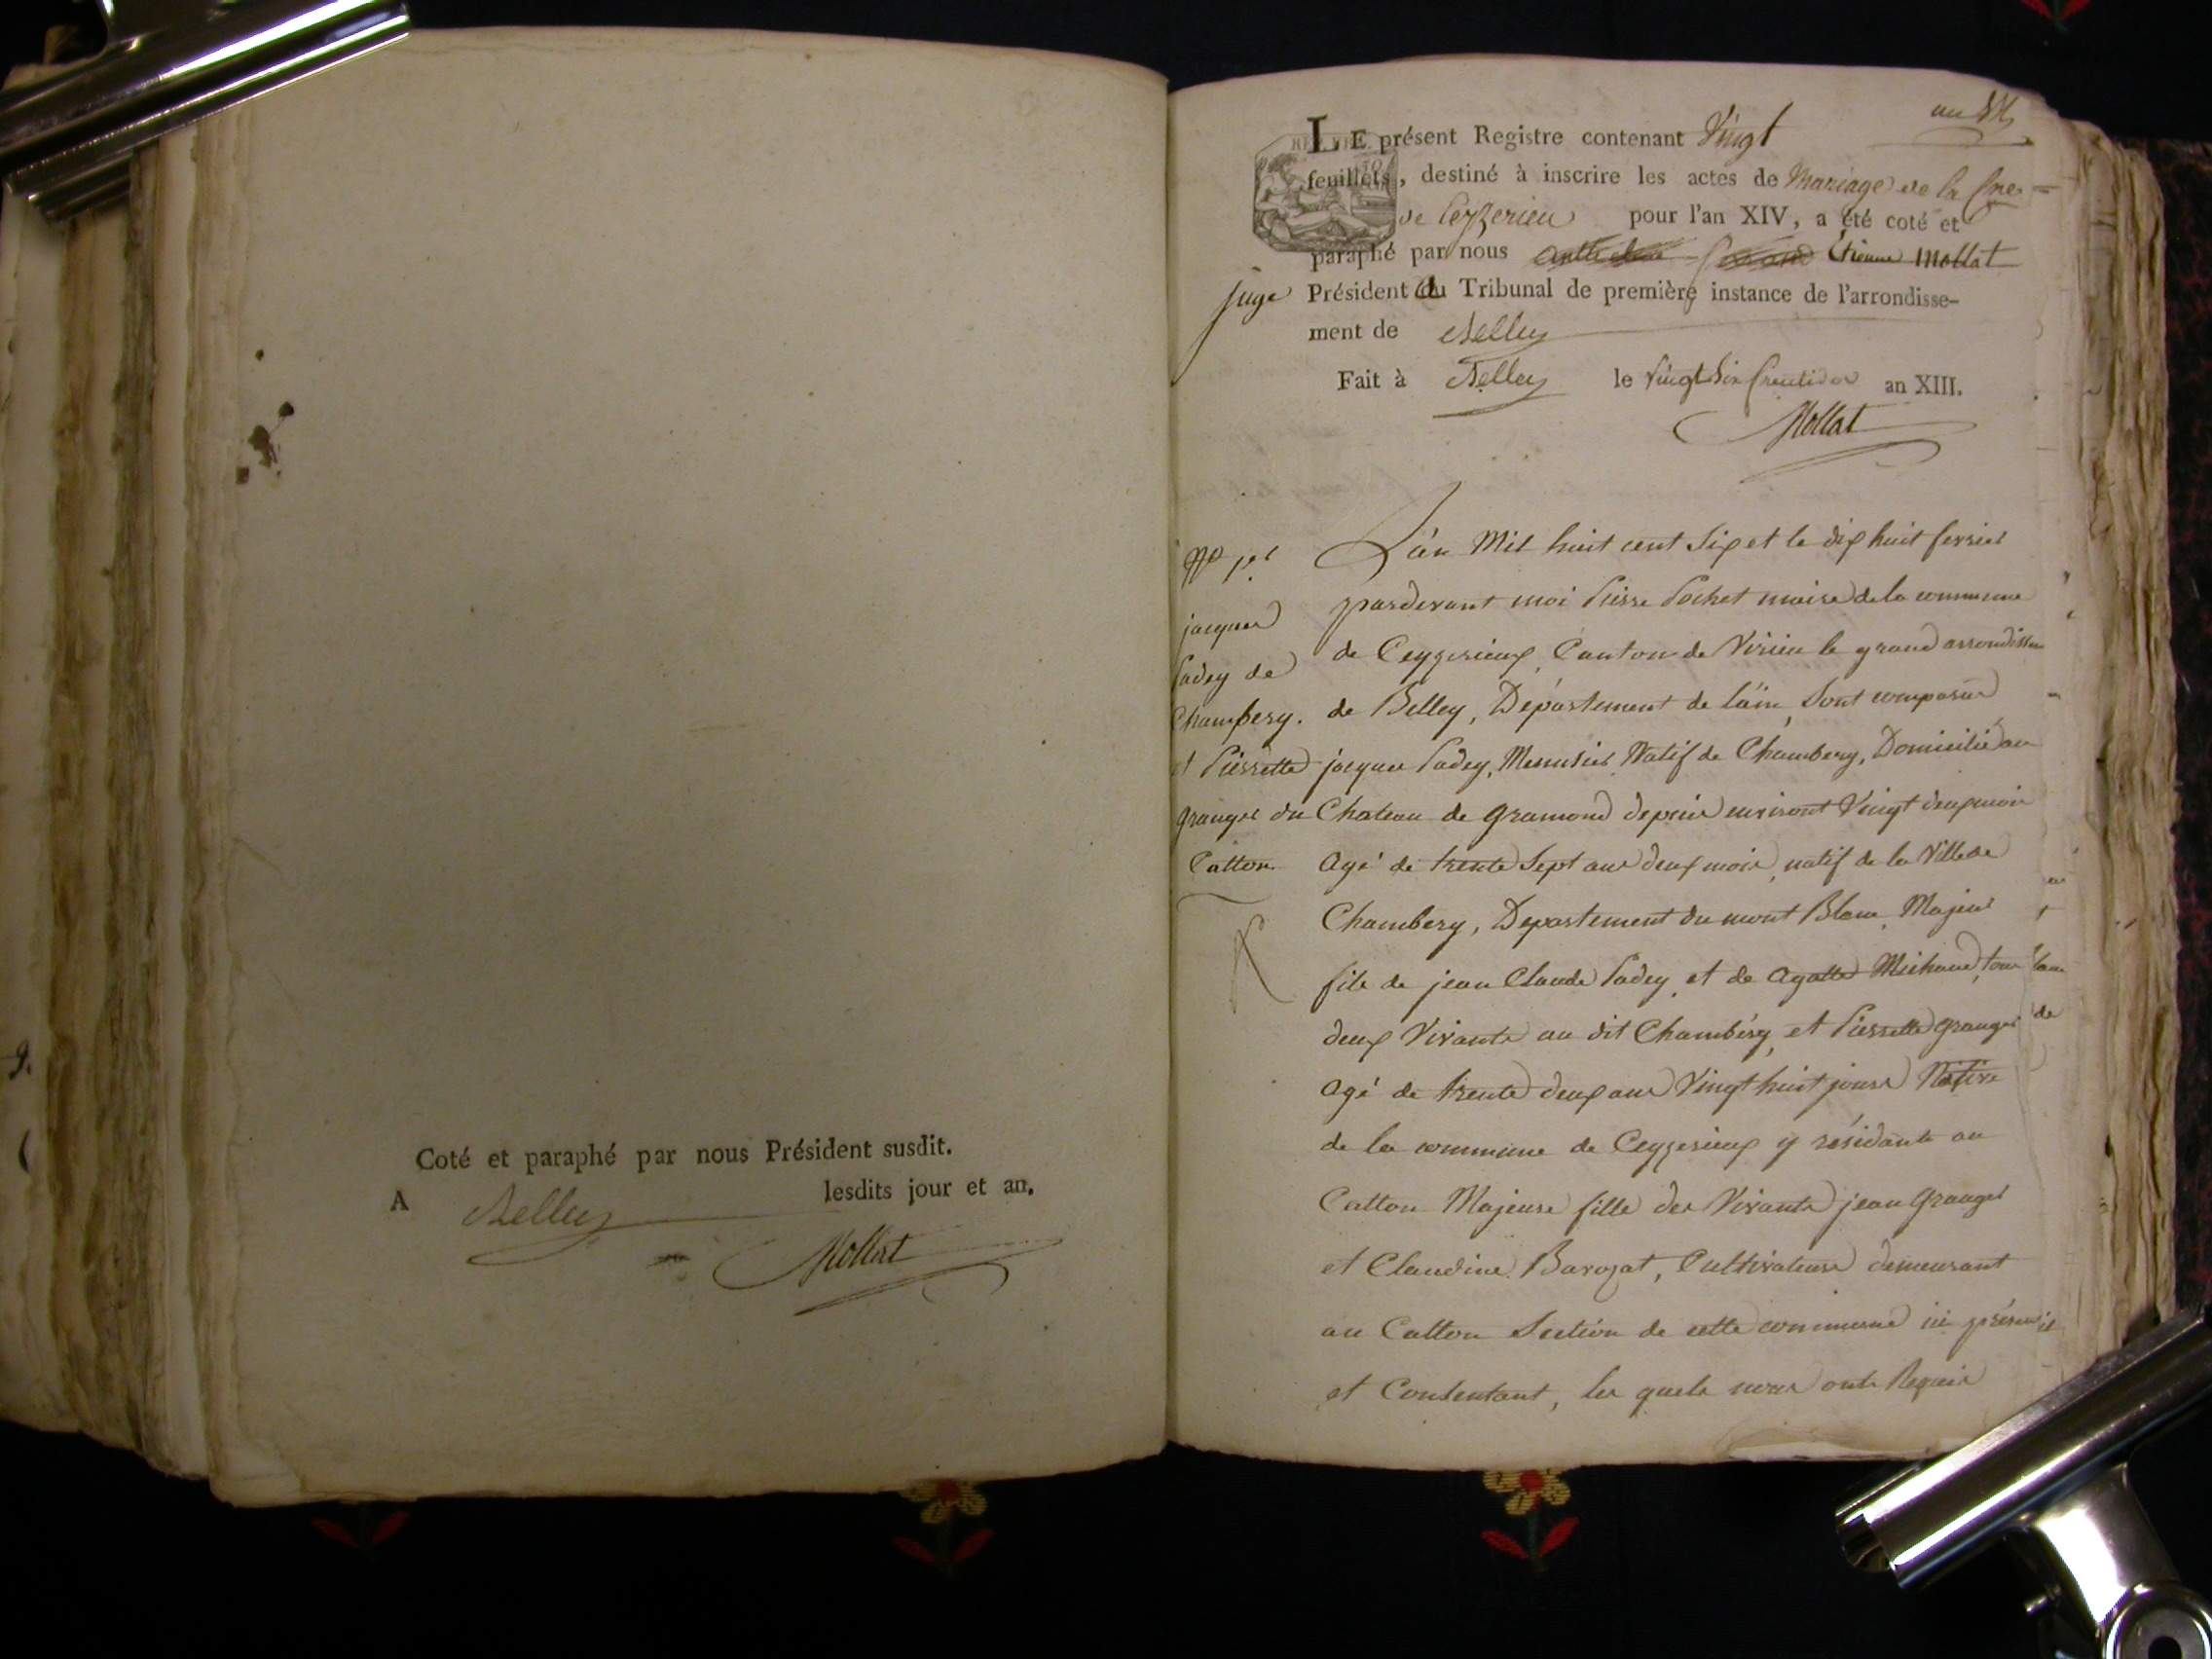 Coté et paraphé par nous Président susdit.
A Belley lesdits jour et an.
Mollat
an 14
LE présent Registre contenant Vingt
feuillets, destiné à inscrire les actes de Mariage de la Cne
de Ceyzerieu pour l'an XIV, a été coté et
paraphé par nous Etienne Mollat
Juge Président du Tribunal de première instance de l'arrondisse-
ment de Belley
Fait à Belley le Vingt Six fructidor an XIII.
Mollat
No 1er
jacques
Padey de
Chambery.
et Pierrette
granger du
Catton
L'an Mil huit cent Six et le dix huit fevrier
pardevant moi Pierre Pochet maire de la commune
de Ceyzerieux, Canton de Virieu le grand arrondissem
de Belley, Département de l'äin, Sont comparus
jacques Padey, Menusier Natif de Chambery, Domicilié au
Chateau de gramond depuis environt Vingt deux mois
Agé de trente Sept ans deux mois, natif de la Ville de
Chambery, Departement du mont Blanc, Majeur
fils de jean Claude Padey et de Agatte Michaud, tous
deux Vivants au dit Chambéry, et Pierrette granger
Agé de trente deux ans Vingt huit jours Native
de la commune de Ceyzerieux y résidante au
Catton Majeure fille des Vivants jean granger
et Claudine Barozat, Cultivateurs demeurant
au Catton Section de cette commune ici présent
et Consentant, les quels nous ont Requis